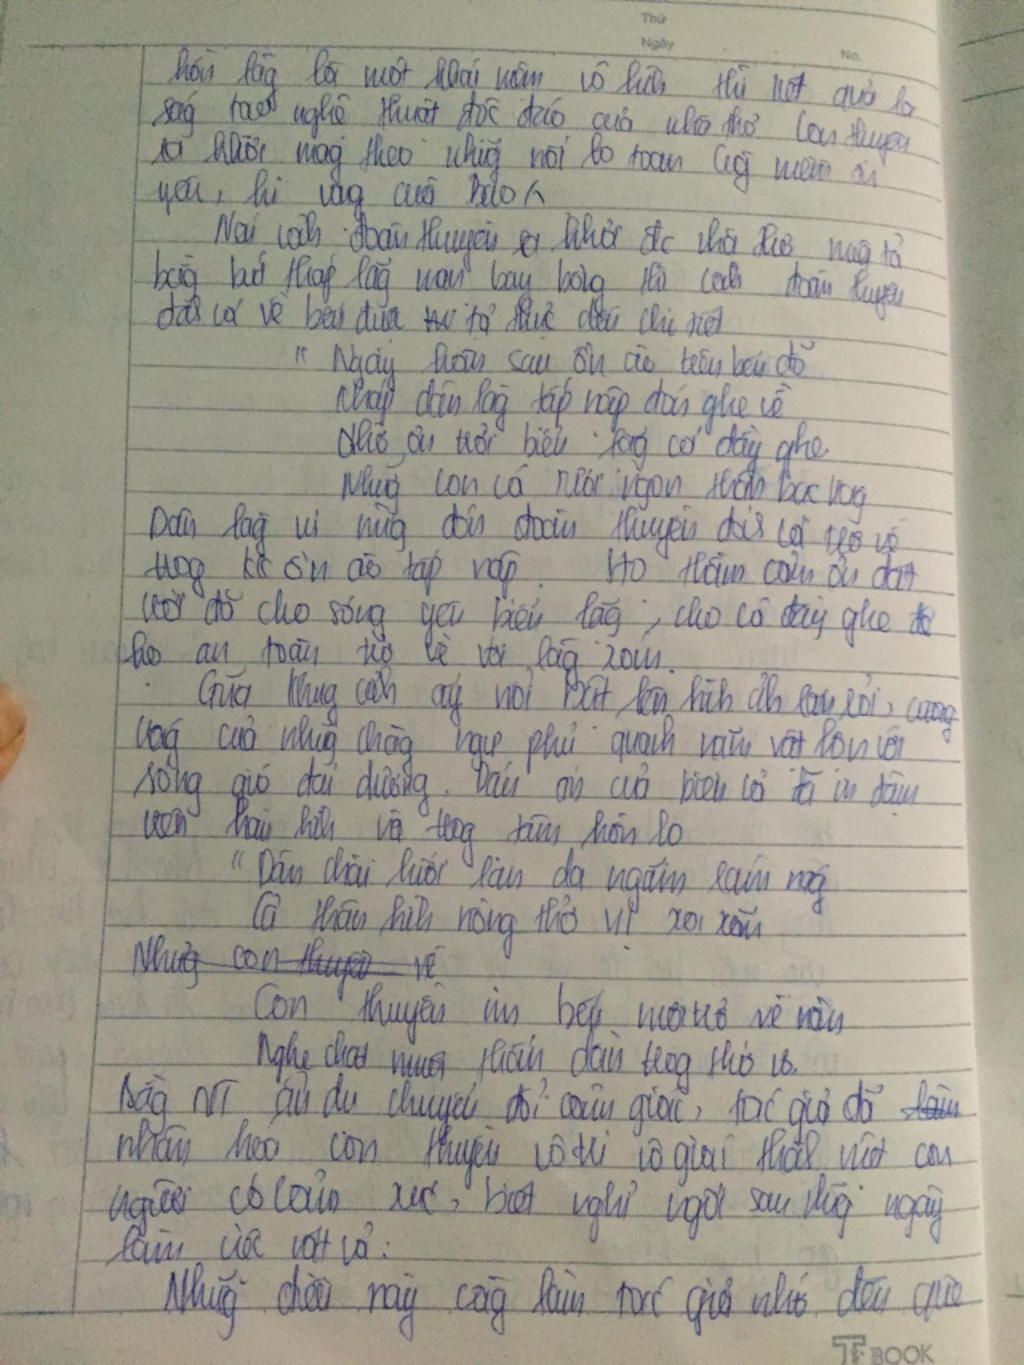 Thứ
Ngày
No.
hồn làg là một khái niệm vô hình thì kết quả là
ság tạo nghệ thuật độc đáo của nhà thơ Con thuyền
ra khơi mag theo nhữg nỗi lo toan cũg niềm tin
yêu, hi vọg của bao
Nếu cảnh đoàn thuyền ra khơi đc nhà thơ miêu tả
bằg bút pháp lãg mạn bay bổng thì cảnh đoàn thuyền
đáh cá về bến đưa tả thực đến chi tiết
" Ngày hôm sau ồn ào trên bến đỗ
Khắp dân làg tấp nập đón ghe về
Nhờ ơn trời biển lặg cá đầy ghe
Nhữg con cá tươi ngon thân bạc trắg
Dân làg vui mừg đón đoàn thuyền đáh cá trở về
trog k² ồn ào tấp nập. Họ thầm cảm ơn đất
trời đã cho sóng yên biển lặg, cho cá đầy ghe để
họ an toàn trở về với làg xóm.
Giữa khug cảnh ấy nổi bật lên hình ảh lam lũ, cường
trág của nhữg chàg ngư phủ quanh năm vật lộn với
sóng gió đại dương. Dấu ấn của biển cả đã in đậm
trên thân hình và trog tâm hồn họ
" Dân chài lưới làn da ngăm rám nắg
Cả thân hình nồng thở vị xa xăm
Nhữg con thuyền về
Con thuyền im bến mỏi trở về nằm
Nghe chất muối thấm dần trog thớ vỏ.
Bằg NT ẩn dụ chuyển đổi cảm giác, tác giả đã làm
nhân hóa con thuyền vô tri vô giác thàh một con
người có cảm xúc, biết nghỉ ngơi sau nhữg ngày
làm việc vất vả.
Nhữg điều này càg làm tác giả nhớ đến quê
T BOOK